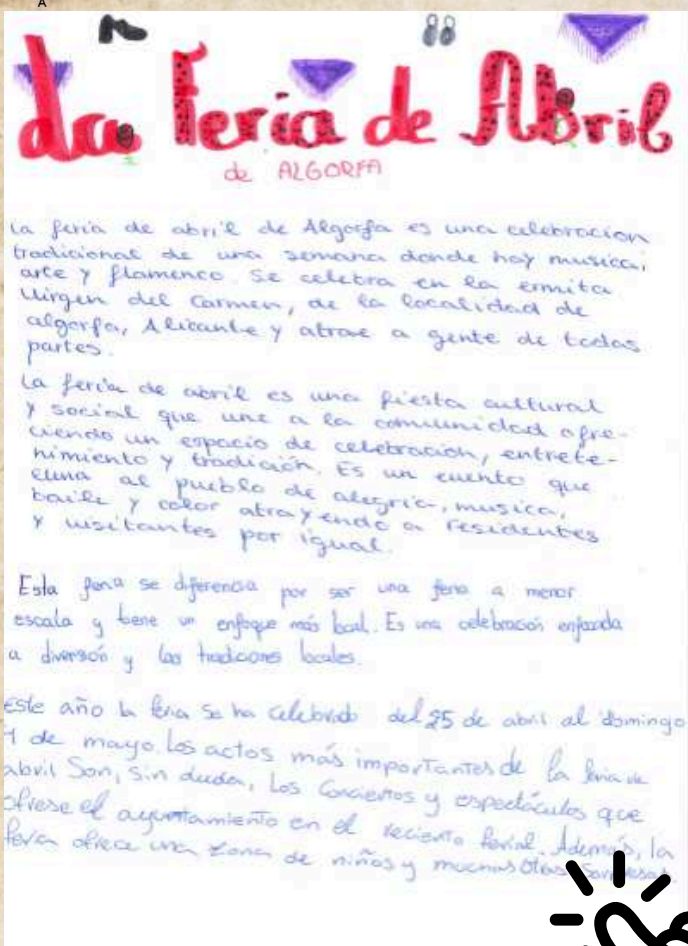 A
La Feria de Abril
de ALGORFA
La feria de abril de Algorfa es una celebracion
tradicional de una semana donde hay musica,
arte y flamenco. Se celebra en la ermita
Virgen del Carmen, de la localidad de
algorfa, Alicante y atrae a gente de todas
partes.
La feria de abril es una fiesta cultural
y social que une a la comunidad ofre-
ciendo un espacio de celebración, entrete-
nimiento y tradición. Es un evento que
llena al pueblo de alegria, musica,
baile y color atrayendo a residentes
y visitantes por igual.
Esta feria se diferencia por ser una feria a menor
escala y tiene un enfoque más local. Es una celebración enfocada
a diversión y las tradiciones locales.
Este año la feria se ha celebrado del 25 de abril al domingo
de mayo. Los actos más importantes de la feria de
abril Son, sin duda, Los Conciertos y espectáculos que
ofrese el ayuntamiento en el reciento ferial. Además, la
feria ofrece una zona de niños y muchas Otras Sorpresas.